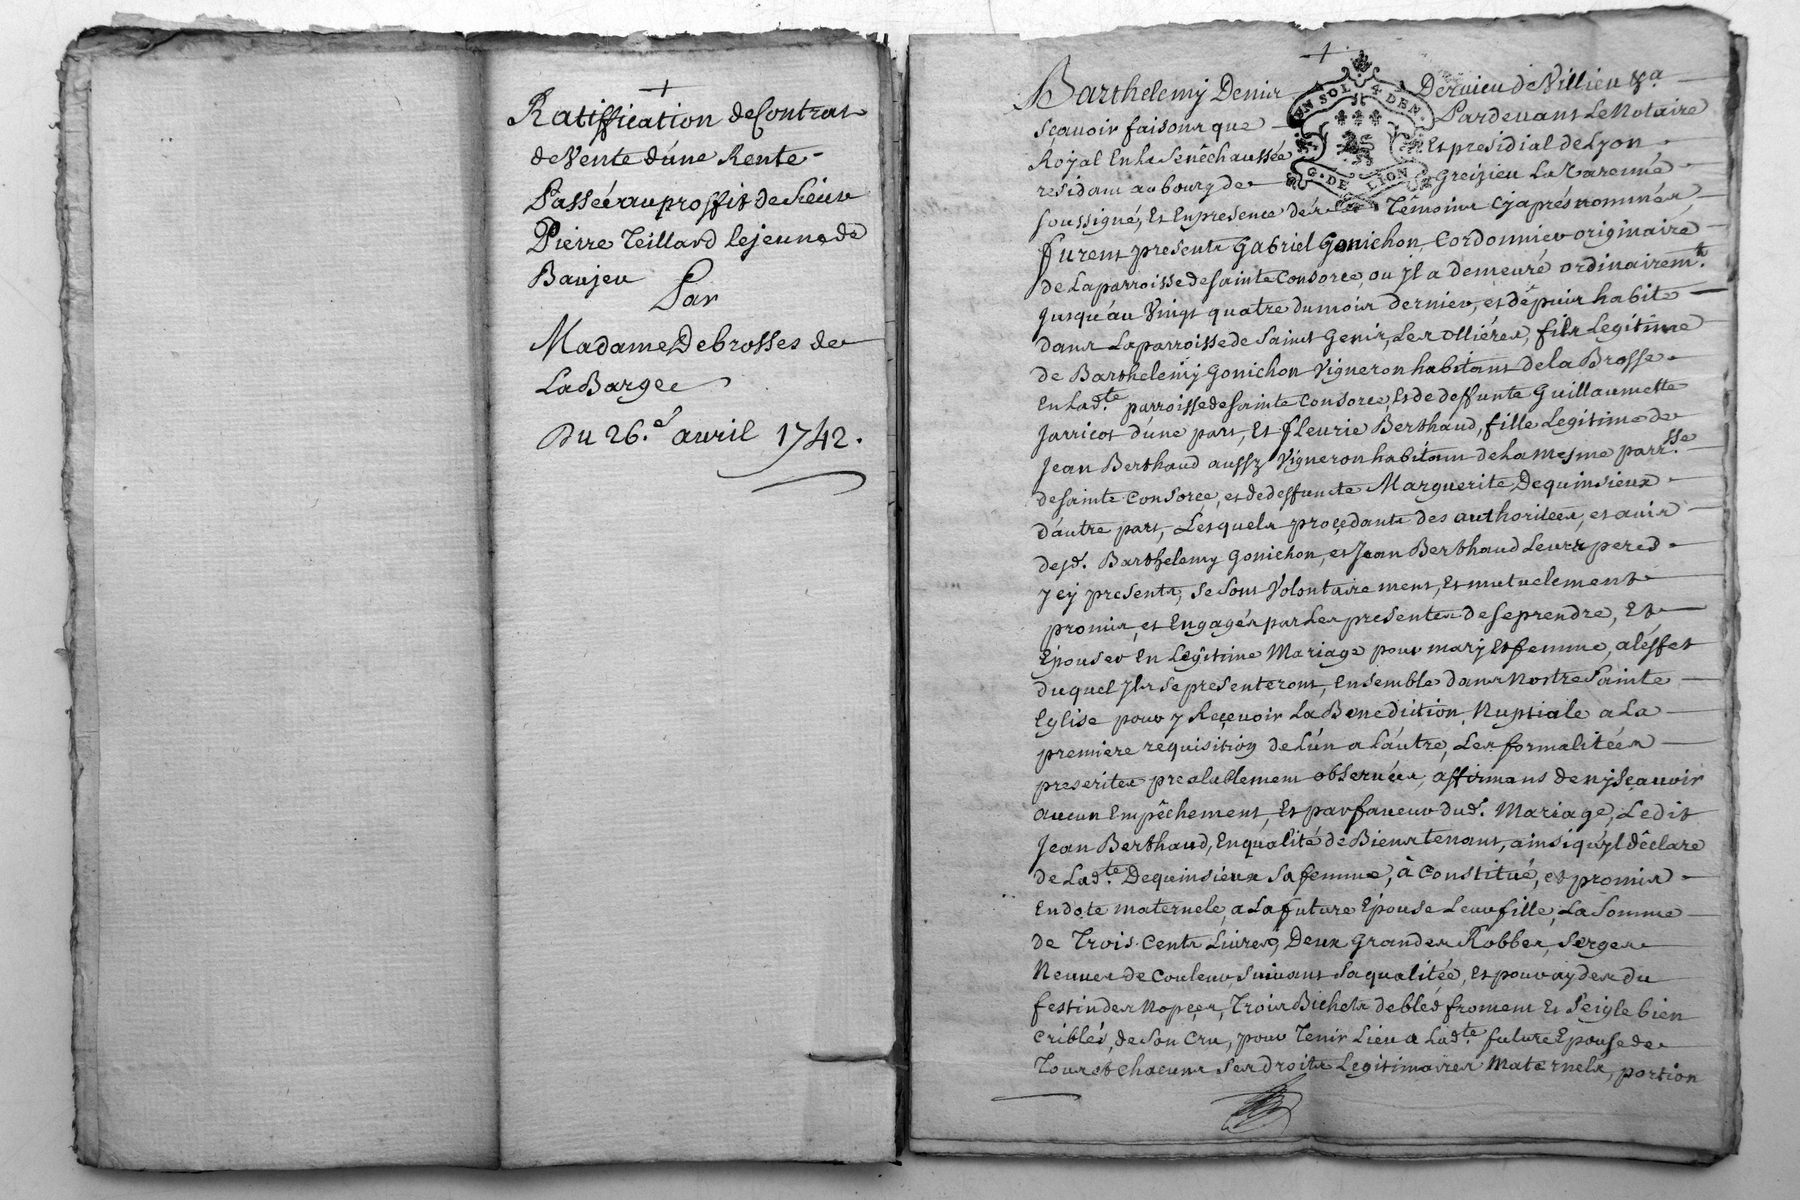 Ratiffication de Contrat
de Vente d'une Rente
Passé au proffit de Sieur
Pierre Teillard le jeune de
Baujeu
Par
Madame Debrosses de
La Barge
Du 26.e avril 1742.
Barthelemy Denis Dervieu de Villieu &a
Sçavoir faisons que Pardevant Le Notaire
Royal En La Senêchaussée Et presidial de Lyon
residant au bourg de Greizieu La Varenne
soussigné, Et En presence des Têmoins Cy aprés nommés
furent presents Gabriel Gonichon, Cordonnier originaire
de La parroisse de Sainte Consorce, ou jl a demeuré ordinairemt.
Jusqu'au Vingt quatre du mois dernier, et dépuis habite
dans La parroisse de Saint Genis, Les Ollières, fils Legitime
de Barthelemy Gonichon Vigneron habitant de la Brosse
En Lad.te parroisse de Sainte Consorce, Et de deffunte Guillaumette
Jarricot d'une part, Et fleurie Berthaud, fille Legitime de
Jean Berthaud aussy Vigneron habitant de La mesme parr.sse
de Sainte Consorce, et de deffuncte Marguerite Dequinsieux
d'autre part, Lesquels proçedants des authoritées, et avis
desd. Barthelemy Gonichon, et Jean Berthaud Leurs peres
jcy presents, se sont Volontairement, Et mutuelement
promis, et Engagés par Les presentes de se prendre, Et
Epouser En Legitime Mariage pour mary Et femme, a l'éffet
duquel jls se presenteront, Ensemble dans Nostre Sainte
Eglise pour y Reçevoir La Benediction Nuptiale a La
premiere requisition de L'un a L'autre, Les formalitées
prescrites prealablement observées, affirmans de ny sçavoir
aucun Empêchement, Et par faveur dud. Mariage, Ledit
Jean Berthaud, En qualité de Biens tenant, ainsi qu'jl dêclare
de Lad.te Dequinsieux Sa femme, à Constitué, et promis
En dote maternele, a La future Epouse Leur fille, La Somme
de Trois Cents Livres, Deux Grandes Robbes, Serges
Neuves de Couleur, Suivant Sa qualitée, Et pour ayder du
festin des Nopçes, Trois Bichets de bled froment Et Seigle bien
criblés, de Son Cru, pour Tenir Lieu a Lad.te future Epouse de
Tous et chacuns Ses droits Legitimaires Maternels, portion
UN SOL 4 DEN.
G. DE LION